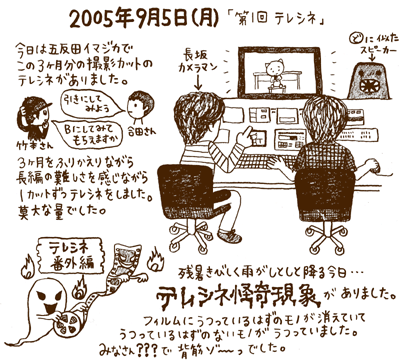 2005年9月5日(月)「第1回 テレシネ」
今日は五反田イマジカで
この3ヶ月分の撮影カットの
テレシネがありました。
引きにして
みよう
Bにしてみて
もらえますか
竹本さん
合田さん
3ヶ月をふりかえりながら
長編の難しさを感じながら
1カットずつテレシネをしました。
莫大な量でした。
長坂
カメラマン
に似た
スピーカー
テレシネ
番外編
残暑きびしく雨がしとしと降る今日…
テレシネ怪奇現象がありました。
フィルムにうつっているはずのモノが消えていて
うつっているはずのないモノがうつっていました。
みなさん???で背筋ゾ〜〜っでした。